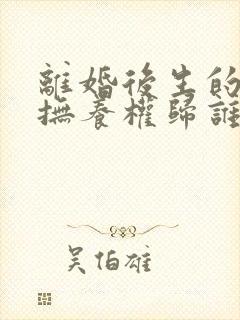 離婚後生的
撫養權歸誰
吳伯雄